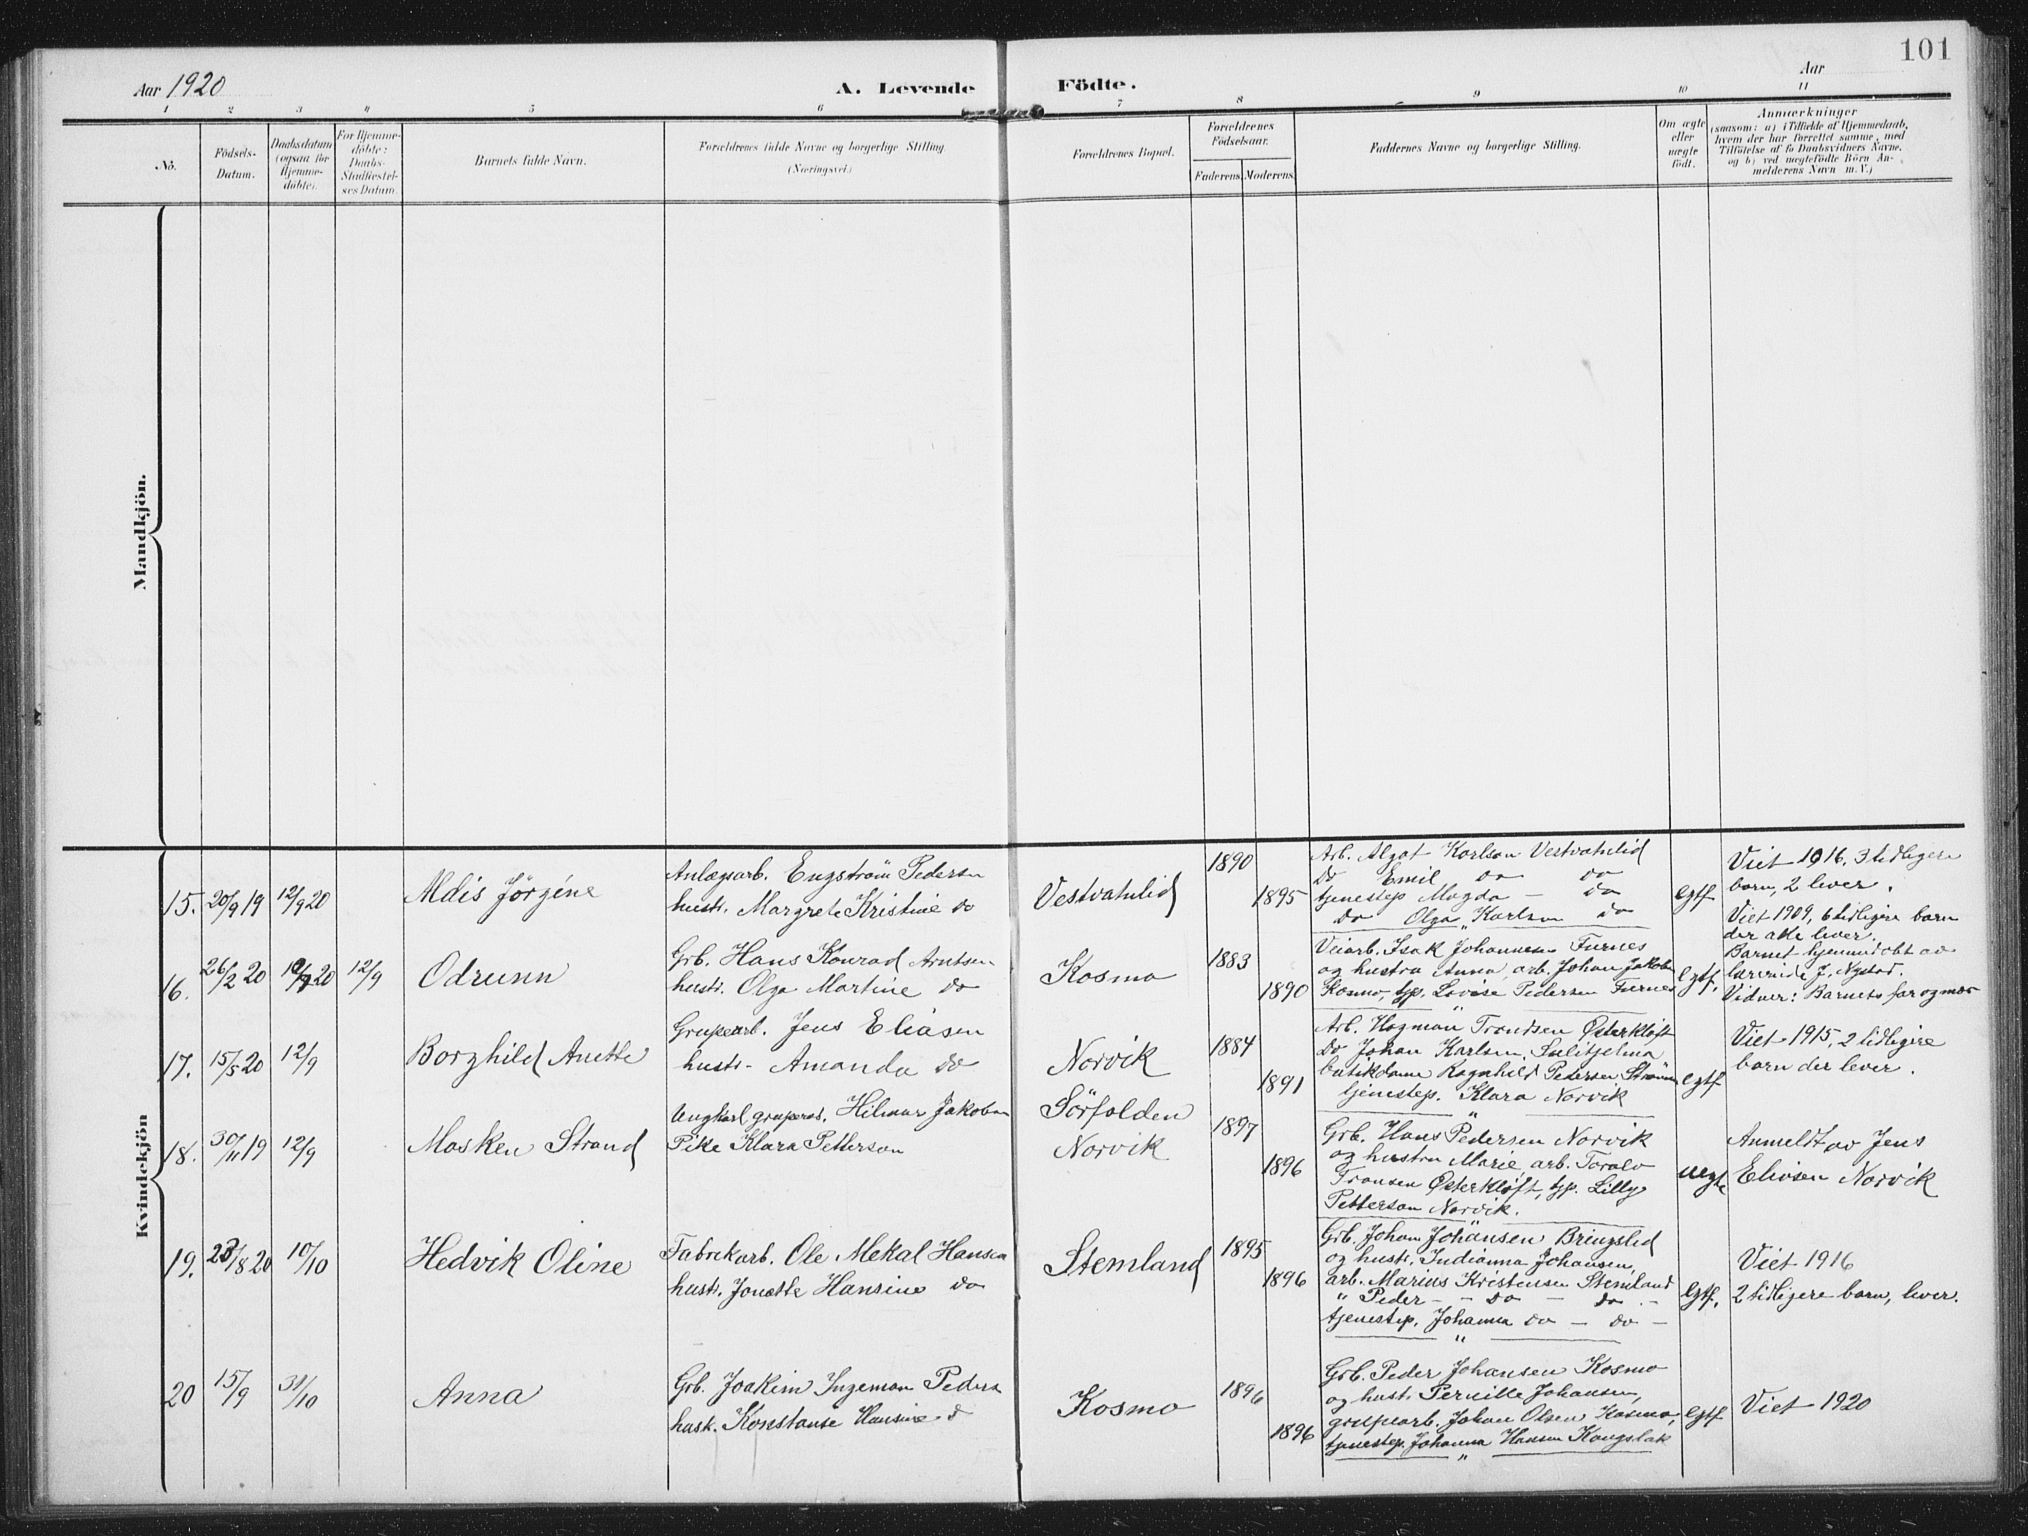 101
Aar 1920
A. Levende Födte.
Aar
1 2 3 4 5 6 7 8 9 10 11
No.
Födsels-Datum.
Daabsdatum (ogsaa for Hjemme-döbte).
For Hjemme-döbte: Daabs-Stadfæstel-ses Datum.
Barnets fulde Navn.
Forældrenes fulde Navne og borgerlige Stilling.
(Næringsvei.)
Forældrenes Bopæl.
Forældrenes Födselsaar.
Faderens. Moderens.
Faddernes Navne og borgerlige Stilling.
Om ægte eller uægte födt.
Anmærkninger
(saasom: a) i Tilfælde af Hjemmedaab, hvem der har forrettet samme, med Tilföielse af to Daabsvidners Navne, og b) ved uægtefödte Börn Anmelderens Navn m. V.)
Mandkjön.
Kvindekjön
15. 20/9 19 12/9 20 Aldis Jørgine
Anlægsarb. Engström Pedersen
hustr. Margrete Kristine do
Vestvatnlid
1890
1895
Arb. Algot Karlson Vestvatnlid
do Emil do do
tjenestep Magda — do
do Olga Karlson do
egtf
Viet 1916, 3 tidligere
barn, 2 lever.
16. 26/2 20 12/9 20 12/9 Odrunn
Grb. Hans Konrad Arntsen
hustr. Olga Martine do
Kosmo
1883
1890
Veiarb. Isak Johannesen Furnes
og hustru Anna, arb. Johan Jakobsen
Kosmo, tjp. Lovise Pedersen Furnes
egtf.
Viet 1909, 6 tidligere barn
der alle lever.
Barnet hjemmedøbt av
lærerinde J. Nystad.
Vidner: Barnets far og mor
17. 15/5 20 12/9 Borghild Anette
Grubearb. Jens Eliasen
hustr. Amanda do
Norvik
1884
1891
Arb. Hagman Trondsen Østerkløft
do Johan Karlsen, Sulitjelma
butikdame Ragnhild Pedersen Straum
tjenestep. Klara Norvik
egtf
Viet 1915, 2 tidligere
barn der lever.
18. 30/11 19 12/9 Masken Strand
Ungkarl grubearb. Hilmar Jakobsen
Pike Klara Petterson
Sörfolden
Norvik
1897
1896
Grb. Hans Pedersen Norvik
og hustru Marie, arb. Toralv
Fransen Østerkløft, tjp. Lilly
Petterson Norvik.
uegte
Anmeldt av Jens
Eliasen Norvik
19. 23/8 20 10/10 Hedvik Oline
Fabrikarb. Ole Mekal Hansen
hustr. Jonette Hansine do
Stemland
1895
1896
Grb. Johan Johansen Bringslid
og hustr. Indianna Johansen,
arb. Marius Kristensen Stemland
" Peder - - do - do -
tjenestep. Johanna do - do -
egtf.
Viet 1916
2 tidligere barn, lever.
20 15/9 31/10 Anna
Grb. Joakim Ingeman Peders
hustr. Konstanse Hansine d
Kosmo
1896
1896
Grb. Peder Johansen Kosmo
og hust. Pernille Johansen,
grubearb. Johan Olsen Kosmo,
tjenestep. Johanna Hansen Kongsbak
egtf
Viet 1920